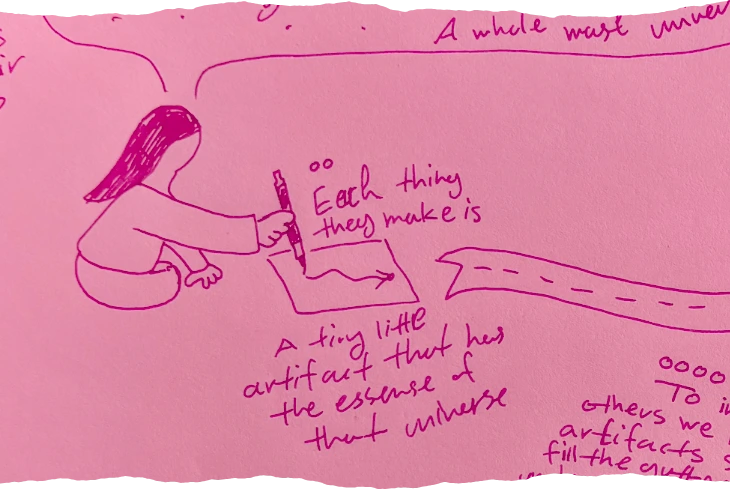 A whole mast univer
Each thing
they make is
A tiny little
artifact that has
the essense of
that universe
To
others we
artifacts
fill the